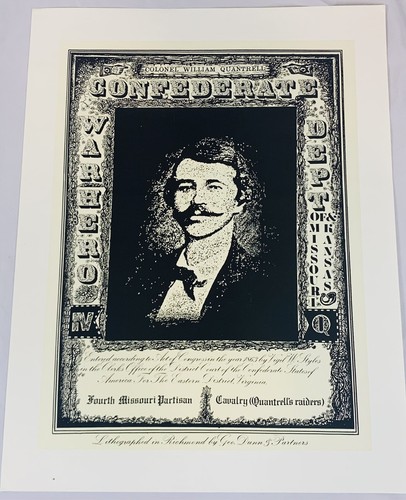 COLONEL WILLIAM QUANTRELL
CONFEDERATE
WARHERO
DEPT
OF MISSOURI
& KANSAS
IV
Q
Entered according to Act of Congress in the year 1863 by Virgil W. Styles
in the Clerks Office of the District Court of the Confederate States of
America For The Eastern District, Virginia
Fourth Missouri Partisan Cavalry (Quantrell's raiders)
Lithographed in Richmond by Geo. Dunn & Partners